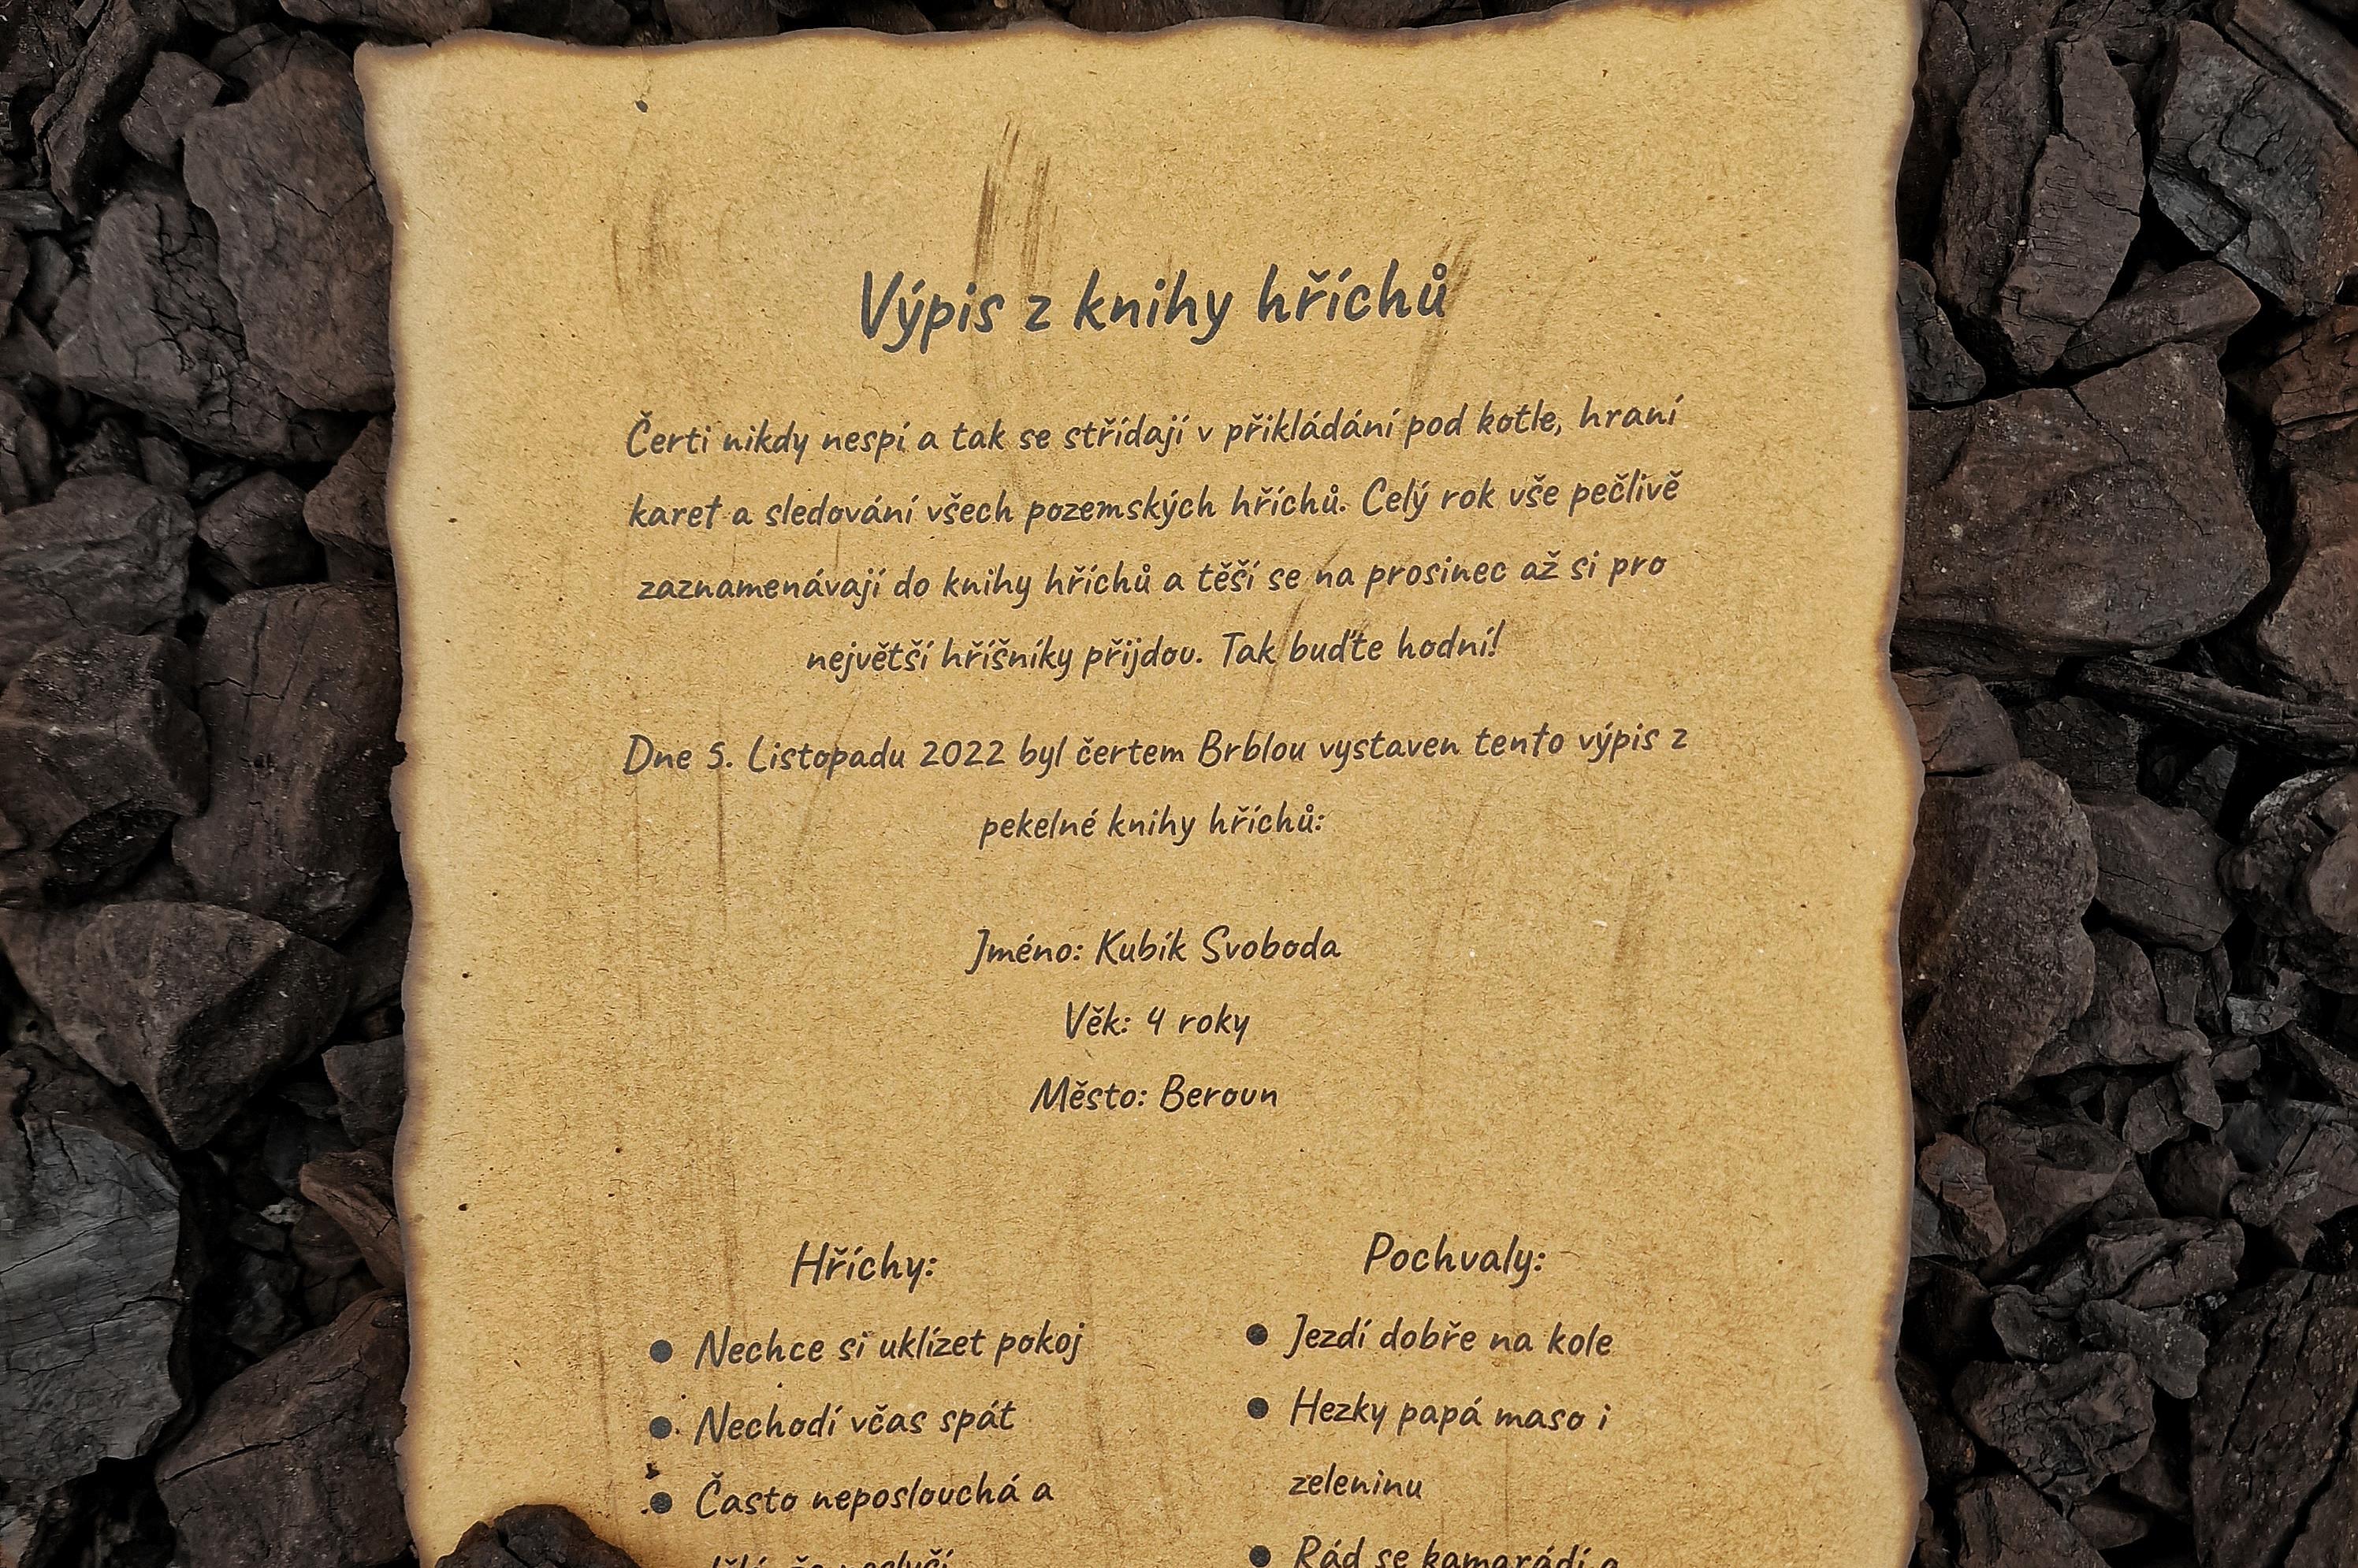 Výpis z knihy hříchů
Čerti nikdy nespí a tak se střídají v přikládání pod kotle, hraní
karet a sledování všech pozemských hříchů. Celý rok vše pečlivě
zaznamenávají do knihy hříchů a těší se na prosinec až si pro
největší hříšníky přijdou. Tak buďte hodní!
Dne 5. Listopadu 2022 byl čertem Brblou vystaven tento výpis z
pekelné knihy hříchů:
Jméno: Kubík Svoboda
Věk: 4 roky
Město: Beroun
Hříchy:
• Nechce si uklízet pokoj
• Nechodí včas spát
• Často neposlouchá a
Pochvaly:
• Jezdí dobře na kole
• Hezky papá maso i
zeleninu
• Rád se kamarádí a